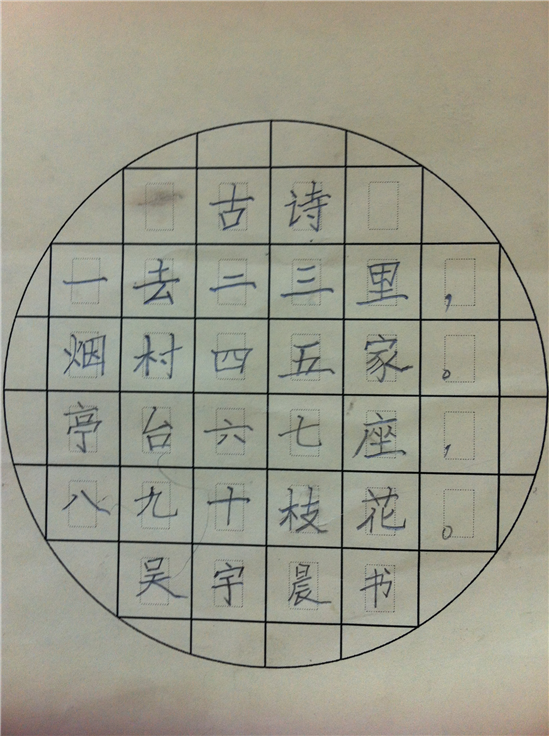 古诗
一去二三里，
烟村四五家。
亭台六七座，
八九十枝花。
吴宇晨书